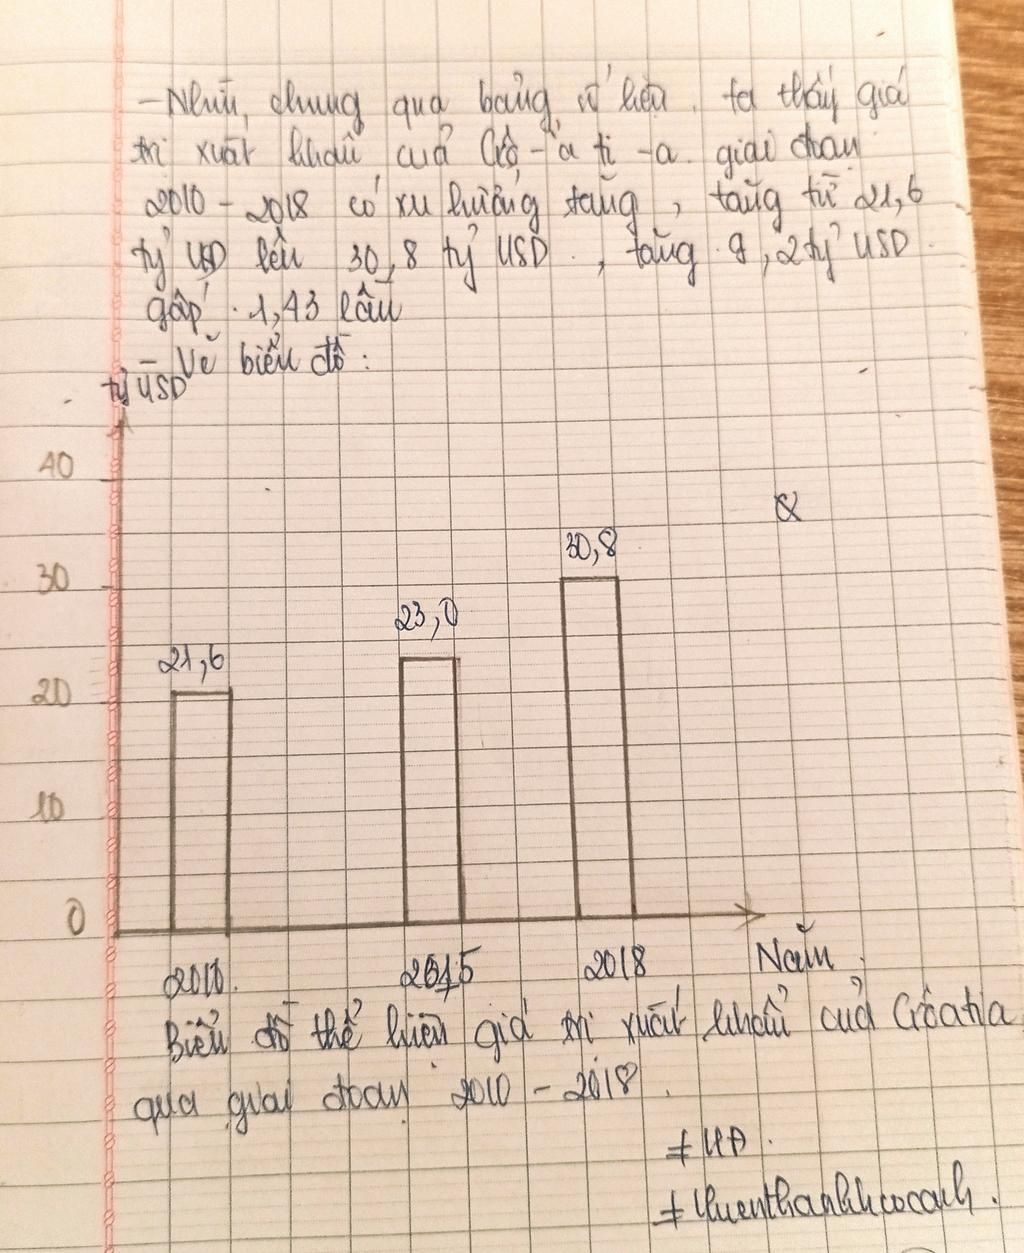 - Nhìn chung qua bảng số liệu, ta thấy giá
trị xuất khẩu của Crô-a ti-a giai đoạn
2010 - 2018 có xu hướng tăng, tăng từ 21,6
tỷ USD lên 30,8 tỷ USD, tăng 9,2 tỷ USD
gấp 1,43 lần
- Vẽ biểu đồ:
tỷ USD
40
30,8
30
23,0
21,6
20
10
0
2010 2015 2018 Năm
Biểu đồ thể hiện giá trị xuất khẩu của Crôatia
qua giai đoạn 2010 - 2018.